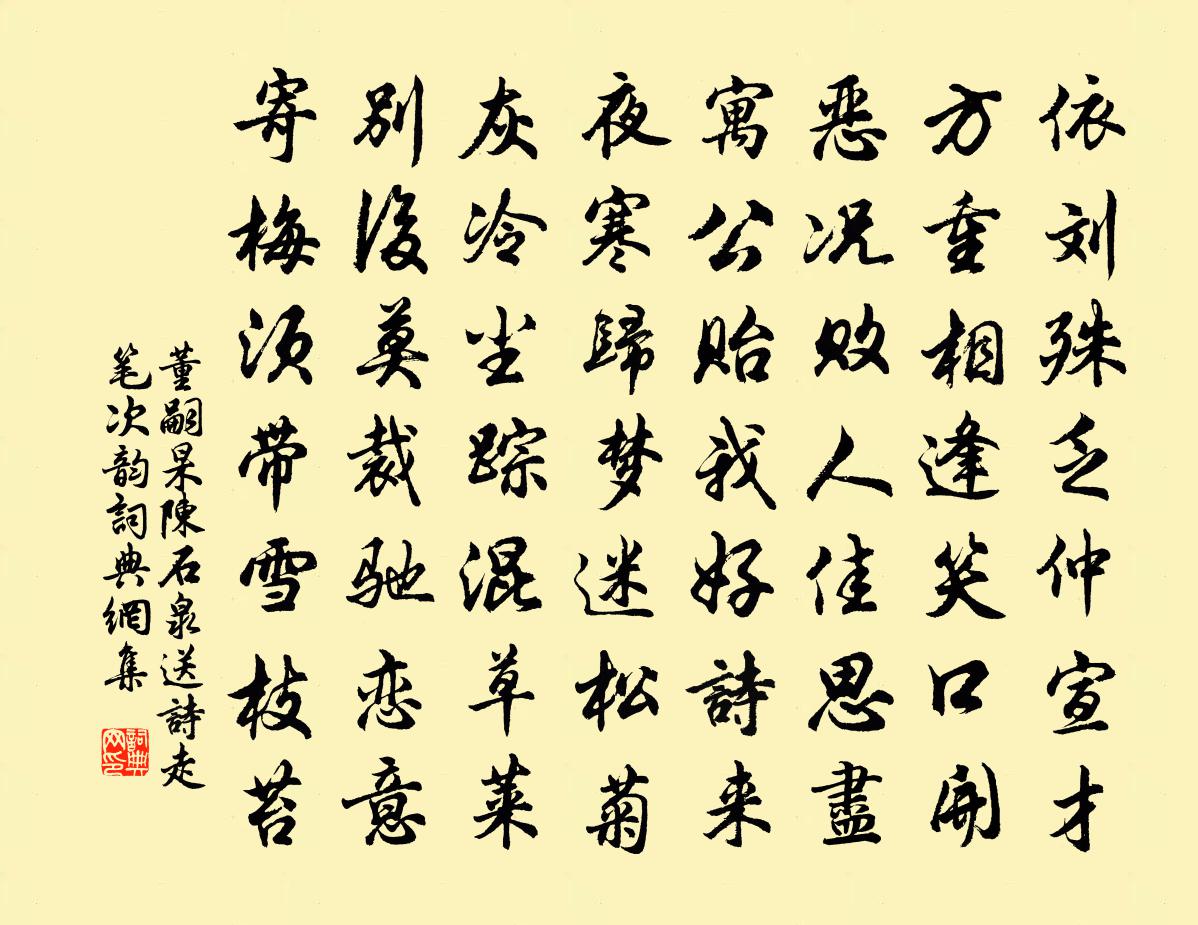 依刘殊乏仲宣才
方重相逢笑口開
恶况败人佳思盡
寓公贻我好詩来
夜寒歸梦迷松菊
灰冷尘踪混草莱
别後莫裁驰恋意
寄梅须带雪枝苔
董嗣杲陳石泉送詩走
笔次韵詞典網集
詞典网印